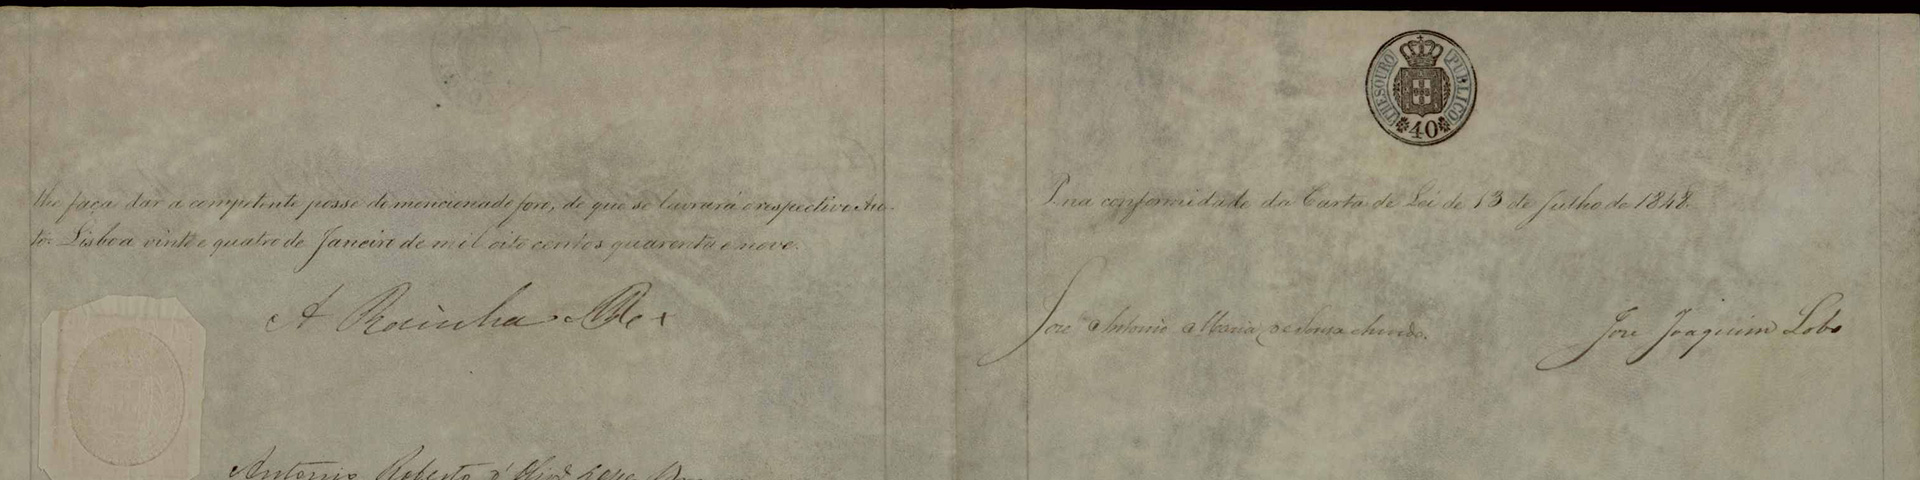 lhe faça dar a competente posse do mencionado foro, de que se lavrará o respectivo Au-
to. Lisboa vinte e quatro de Janeiro de mil oito centos quarenta e nove.
A Rainha
Antonio Roberto d'Olivª Lopes
THESOURO PUBLICO
40
P. na conformidade da Carta de Lei de 13 de Julho de 1848.
José Antonio Maria de Sousa
José Joaquim Lobo